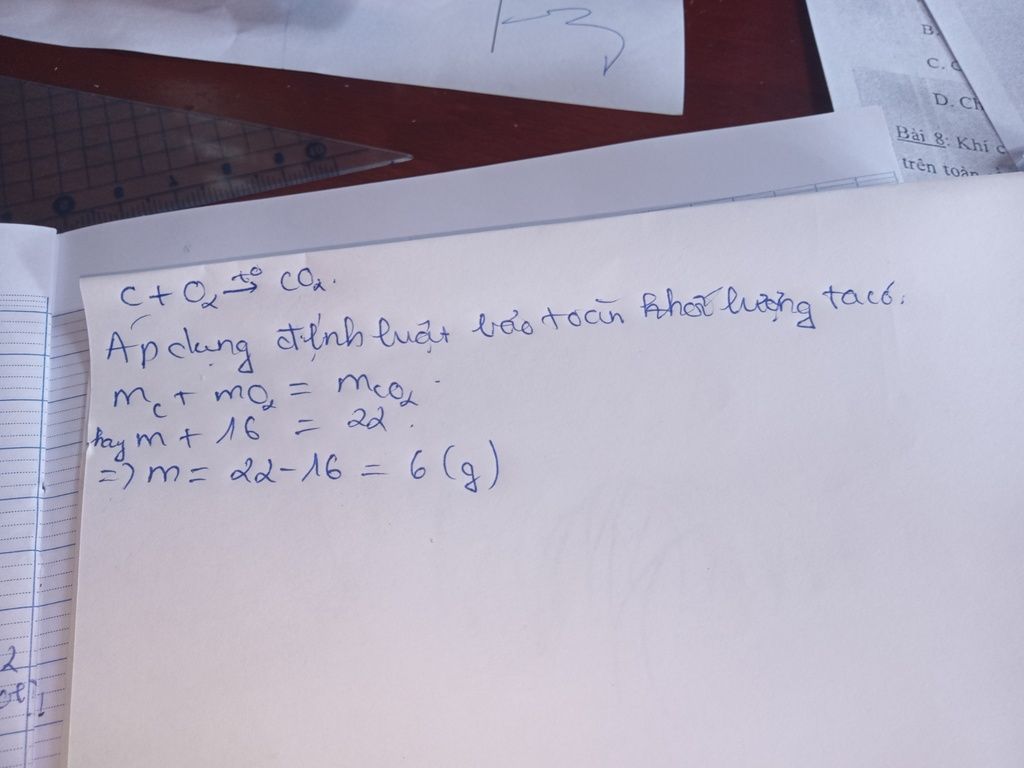 B.
C. C
D. Ch
Bài 8: Khí c
trên toàn
C + O₂ →t⁰ CO₂.
Áp dụng định luật bảo toàn khối lượng ta có.
m_C + mO₂ = m_CO₂
hay m + 16 = 22.
=> m = 22 - 16 = 6 (g)
2